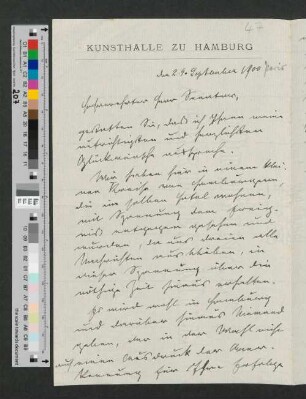 47
KUNSTHALLE ZU HAMBURG
den 29. September 1900 Paris
Hochverehrter Herr Senator,
gestatten Sie, daß ich Ihnen meine
aufrichtigsten und herzlichsten
Glückwünsche ausspreche.
Wir haben hier in einem klei-
nen Kreise von Hamburgern,
die im selben Hotel wohnen,
mit Spannung dem Ereig-
niß entgegen gesehen und
wurden, da uns
Nachrichten ausblieben, in
dieser Spannung über die
nöthige Zeit hinaus erhalten.
Es wird wohl in Hamburg
und darüber hinaus Niemand
geben, der in der Wahl nicht
auch einen Ausdruck der Aner-
kennung für Ihre Erfolge